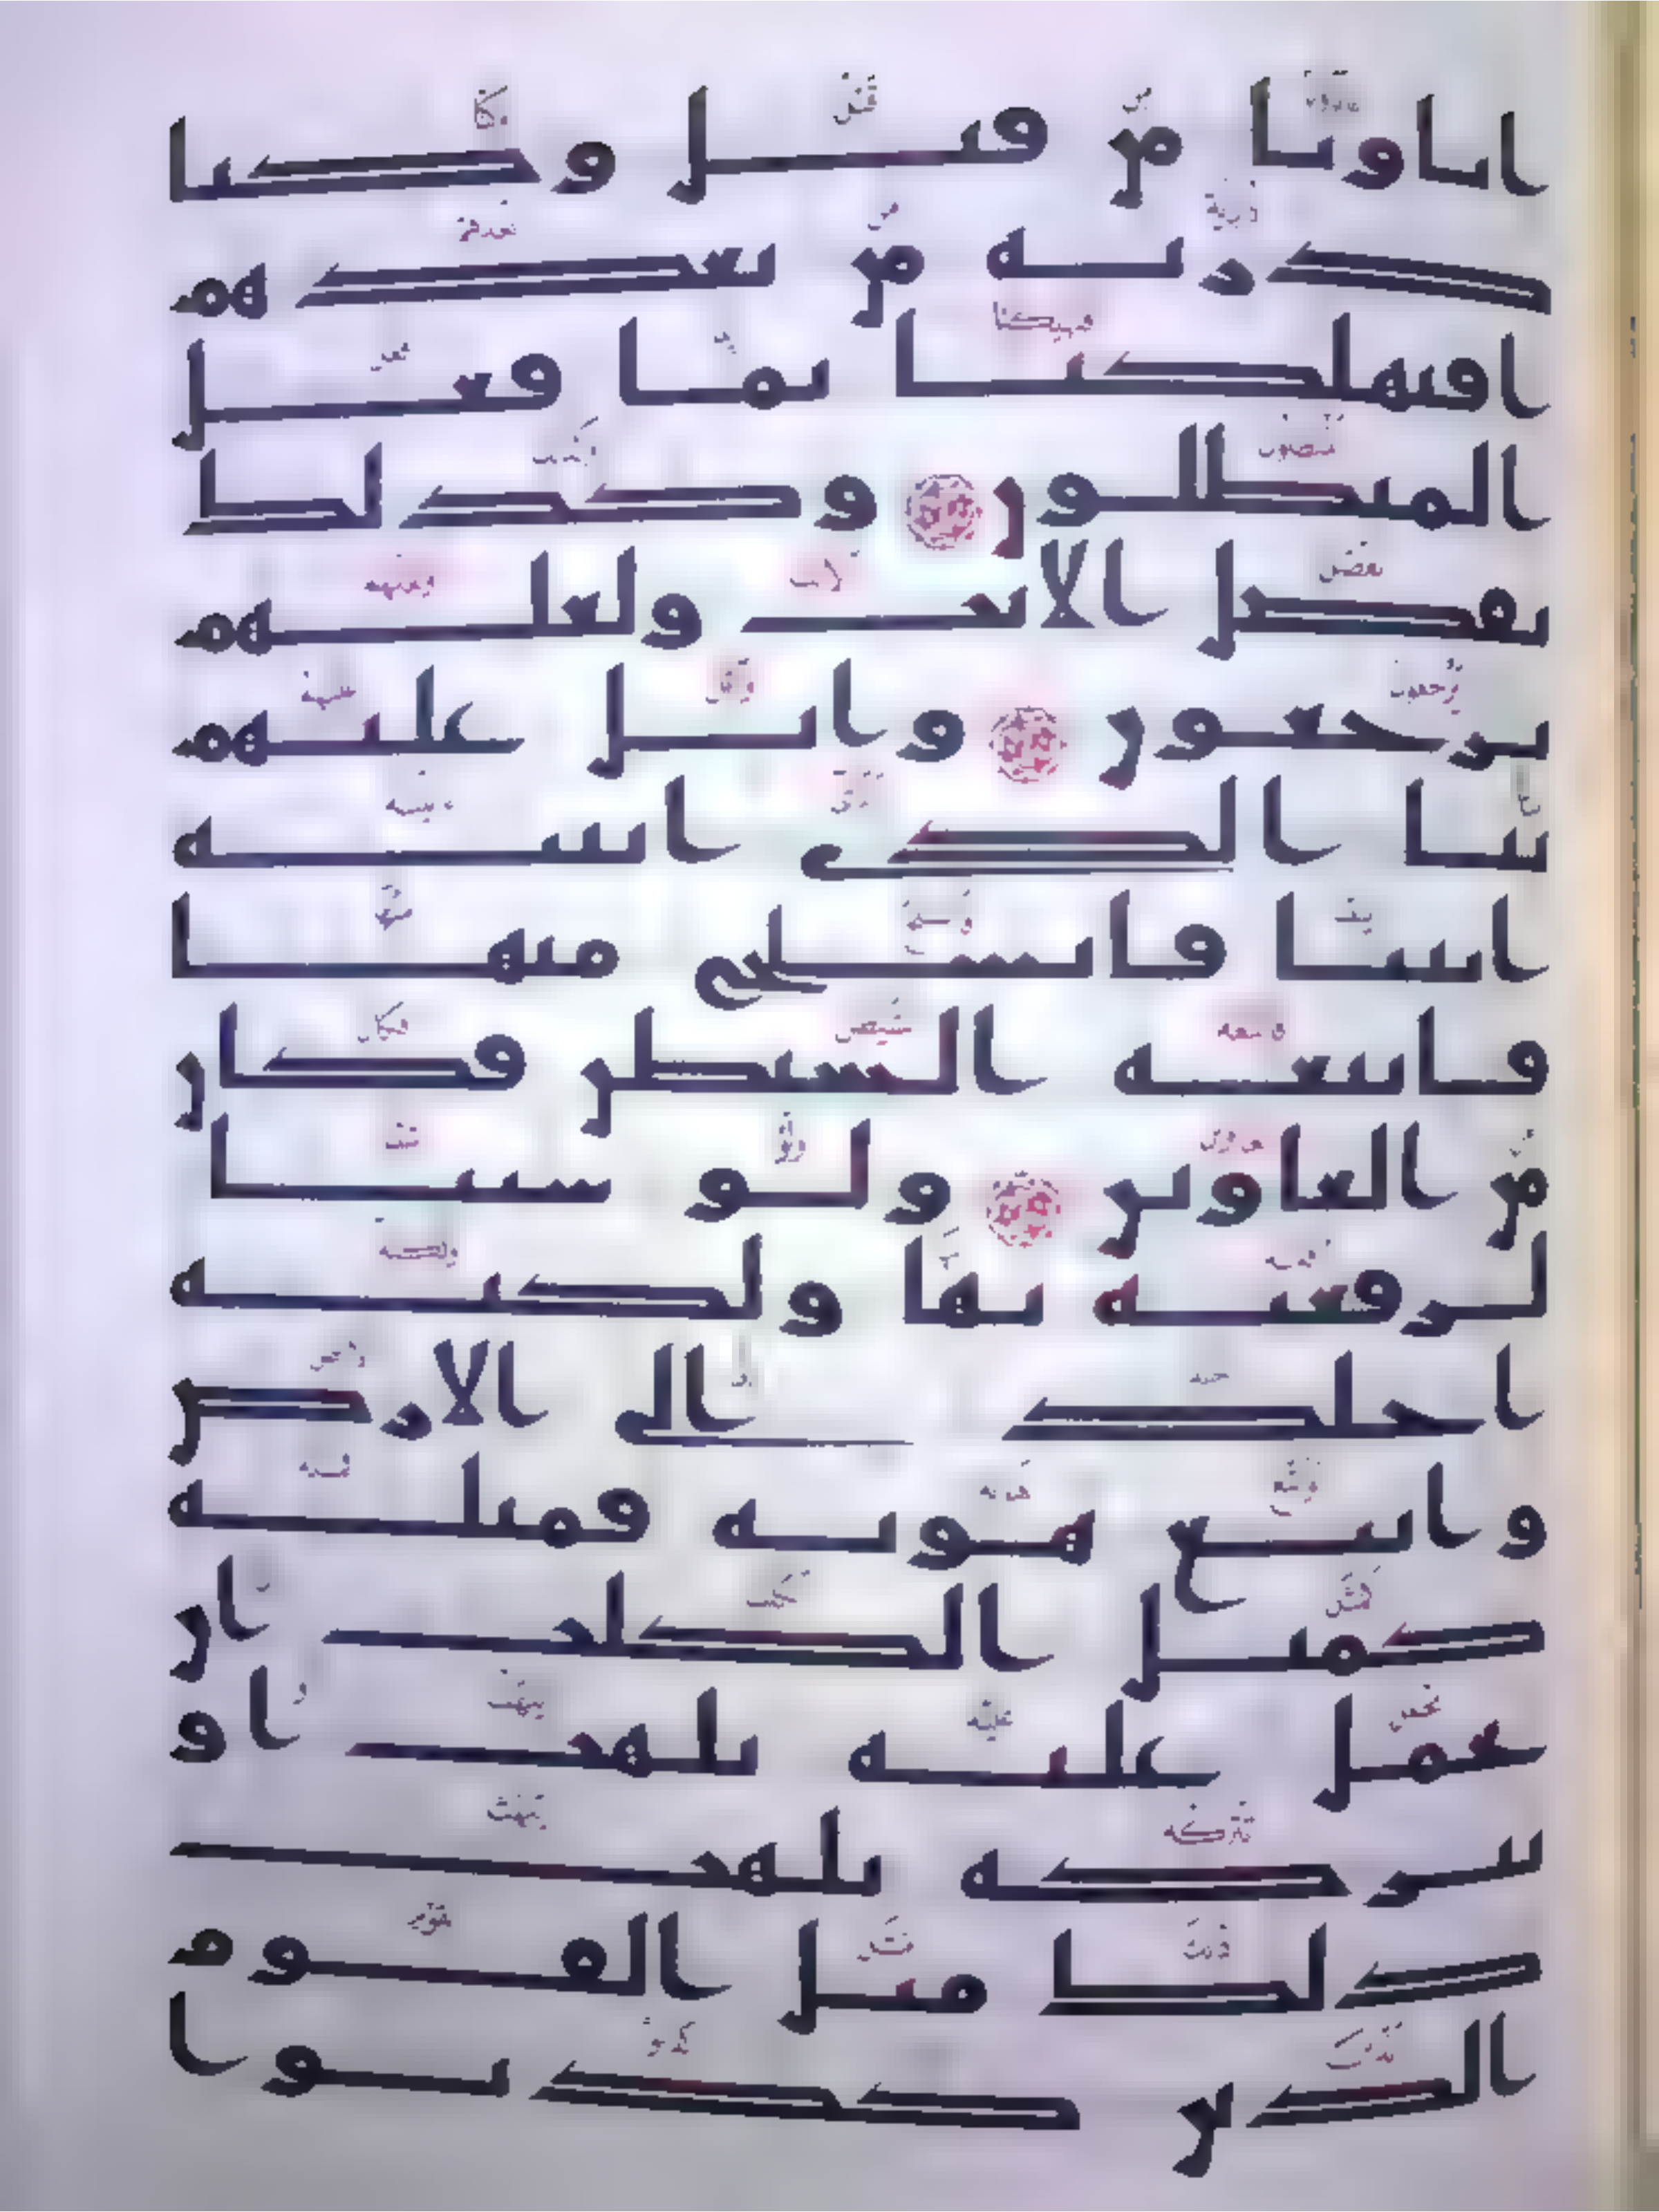 اباونا من قبل وكنا
ذرية من بعدهم
افتهلكنا بما فعل
المبطلون وكذلك
نفصل الايت ولعلهم
يرجعون واتل عليهم
نبا الذي اتينه
ايتنا فانسلخ منها
فاتبعه الشيطن فكان
من الغاوين ولو شينا
لرفعنه بها ولكنه
اخلد الى الارض
واتبع هويه فمثله
كمثل الكلب ان
تحمل عليه يلهث او
تتركه يلهث
ذلك مثل القوم
الذين كذبوا